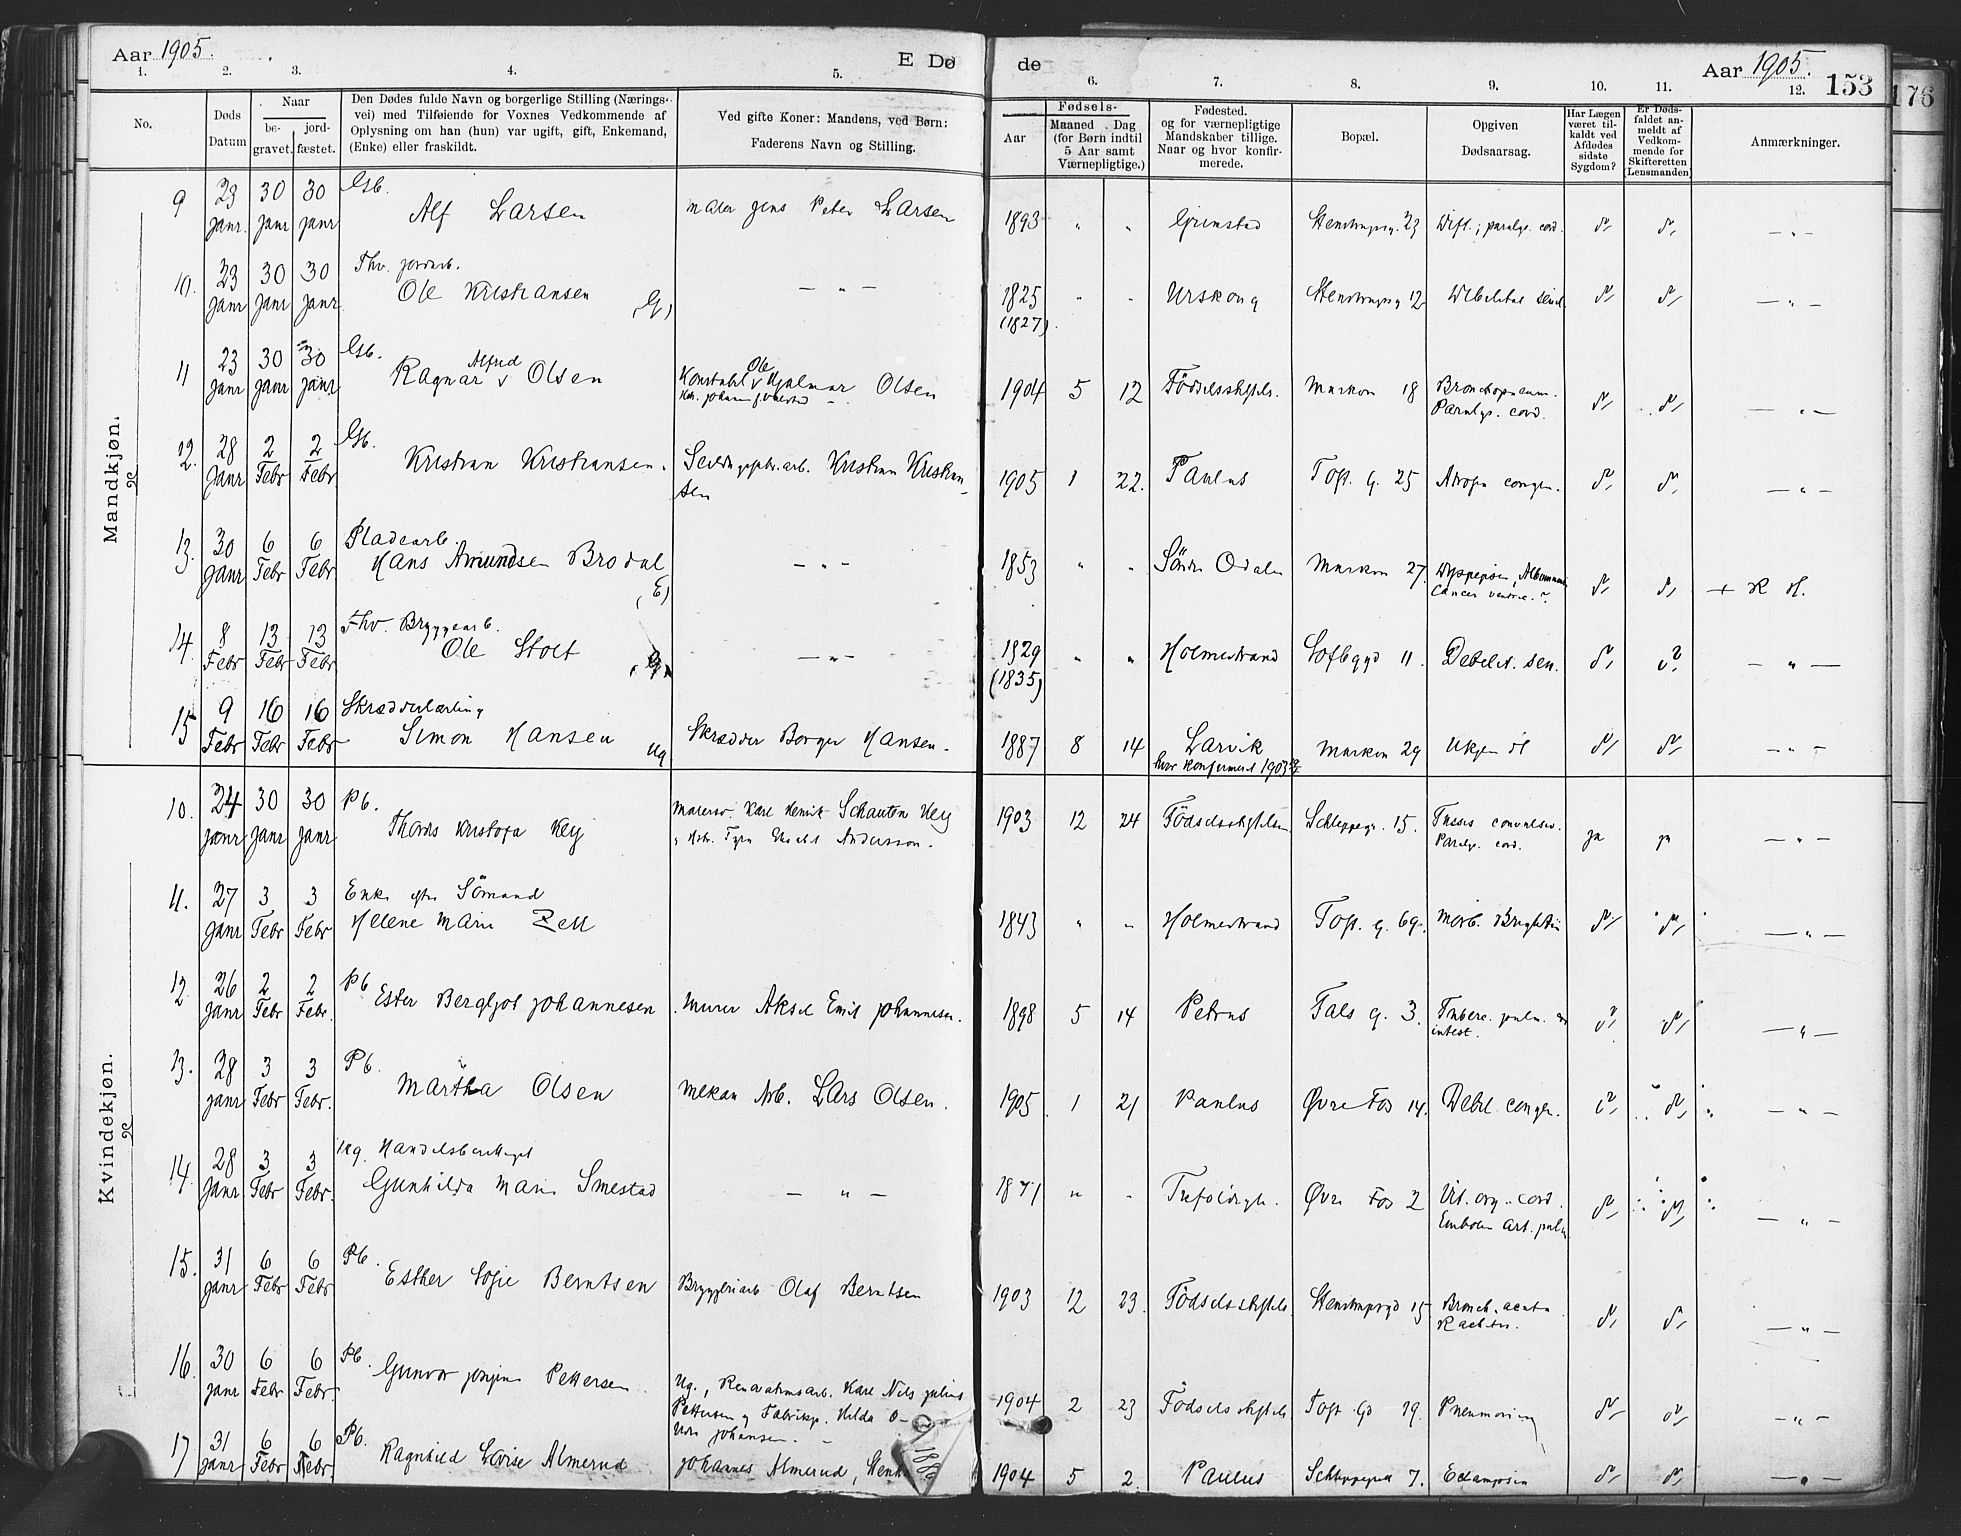 Aar 1905.
E Dø
de
Aar 1905.
153
176
1. 2. 3. 4. 5. 6. 7. 8. 9. 10. 11. 12.
No.
Døds Datum
Naar
be- gravet.
jord- fæstet.
Den Dødes fulde Navn og borgerlige Stilling (Nærings-
vei) med Tilføiende for Voxnes Vedkommende af
Oplysning om han (hun) var ugift, gift, Enkemand,
(Enke) eller fraskildt.
Ved gifte Koner: Mandens, ved Børn:
Faderens Navn og Stilling.
Fødsels-
Aar
Maaned Dag
(for Børn indtil
5 Aar samt
Værnepligtige.)
Fødested.
og for værnepligtige
Mandskaber tillige.
Naar og hvor konfir-
merede.
Bopæl.
Opgiven
Dødsaarsag.
Har Lægen
været til-
kaldt ved
Afdødes
sidste
Sygdom?
Er Døds-
faldet an-
meldt af
Vedkom-
mende for
Skifteretten
(Lensmanden)
Anmærkninger.
Mandkjøn.
9 23 Janr. 30 Janr 30 Janr Gb. Alf Larsen Maler Jens Peter Larsen 1893 " " Grimstad Stenstrupsg. 23 Dift.; paralys. cord. — " —
10. 23 Janr 30 Janr 30 Janr Fhv. jordarb. Ole Kristiansen (G) — " — 1825 (1827) " " Urskoug Stenstrupsg 12 Debilitas senil. — " —
11 23 Janr 30 Janr 30 Janr Gb. Ragnar Alfred Olsen Konstabl Ole Hjalmar Olsen 1904 5 12 Födselsstiftels. Markvn 18 Bronchopneum. Paralys. cord. — " —
12. 28 Janr 2 Febr 2 Febr Gb. Kristian Kristiansen. Kristian Kristian- sen 1905 1 22. Paulus Toft. g. 25 Atrofia congen. — " —
13. 30 Janr 6 Febr 6 Febr Pladearb. Hans Amundsen Brodal (E) — " — 1853 " " Söndre Odalen Markvn 27. Dyspepsia, Cancer ventric. ? + R H.
14. 8 Febr 13 Febr 13 Febr Fhv. Bryggearb. Ole Stolt — " — 1829 (1835) " " Holmestrand Sofbgyd 11. Debilit. sen. — " —
15 9 Febr 16 Febr 16 Febr Skrædderlærling Simon Hansen ug Skrædder Borger Hansen. 1887 8 14 Larvik hvor konfirmert 1903 Markvn 29 — " —
Kvindekjøn.
10. 24 Janr 30 Janr 30 Janr Pb. Thordis Kristofa Hey Karl Henrik Schauten Hey Andersson. 1903 12 24 Födselsstiftelsen Schleppegr. 15. Tussis convulsiv. Paralys. cord. ja ja — " —
11. 27 Janr 3 Febr 3 Febr Enke efter Sömand Helene Marie Zell 1843 " " Holmestrand Toft. g. 69. Morb. Brightii — " —
12 26 Janr 2 Febr 2 Febr. Pb Ester Bergljot Johannesen Murer Aksel Emil Johannesen. 1898 5 14 Petrus Fals g. 3. Tuberc. pulm. intest. — " —
13. 28 Janr 3 Febr 3 Febr. Pb. Martha Olsen Mekan Arb. Lars Olsen. 1905 1 21 Paulus Øvre Fos 14. Debil. congen. — " —
14. 28 Janr 3 Febr 3 Febr. Ug. Handelsberettiget Gunhilda Marie Smestad — " — 1871 " " Trefoldigh. Øvre Fos 2 Vit. org. cord. Emboli art. pulm — " —
15. 31 Janr 6 Febr 6 Febr Pb. Esther Sofie Berntsen Bryggeriarb Olaf Berntsen 1903 12 23. Födselsstiftels. Stenstrupsgd 15 Bronch. acuta Rachitis. — " —
16. 30 Janr 6 Febr 6 Febr. Pb. Gunvor Pettersen Ug., Renovationsarb. Karl Nils Julius Pettersen og Fabrikp. Hilda Johansen. 1904 2 23 Födselsstiftels. Toft Gd 19. Pneumoni — " —
17 31 Janr 6 Febr 6 Febr. Pb. Ragnhild Lovise Almerud Johannes Almerud, 1886 1904 5 2. Paulus 7. Eclampsia — " —